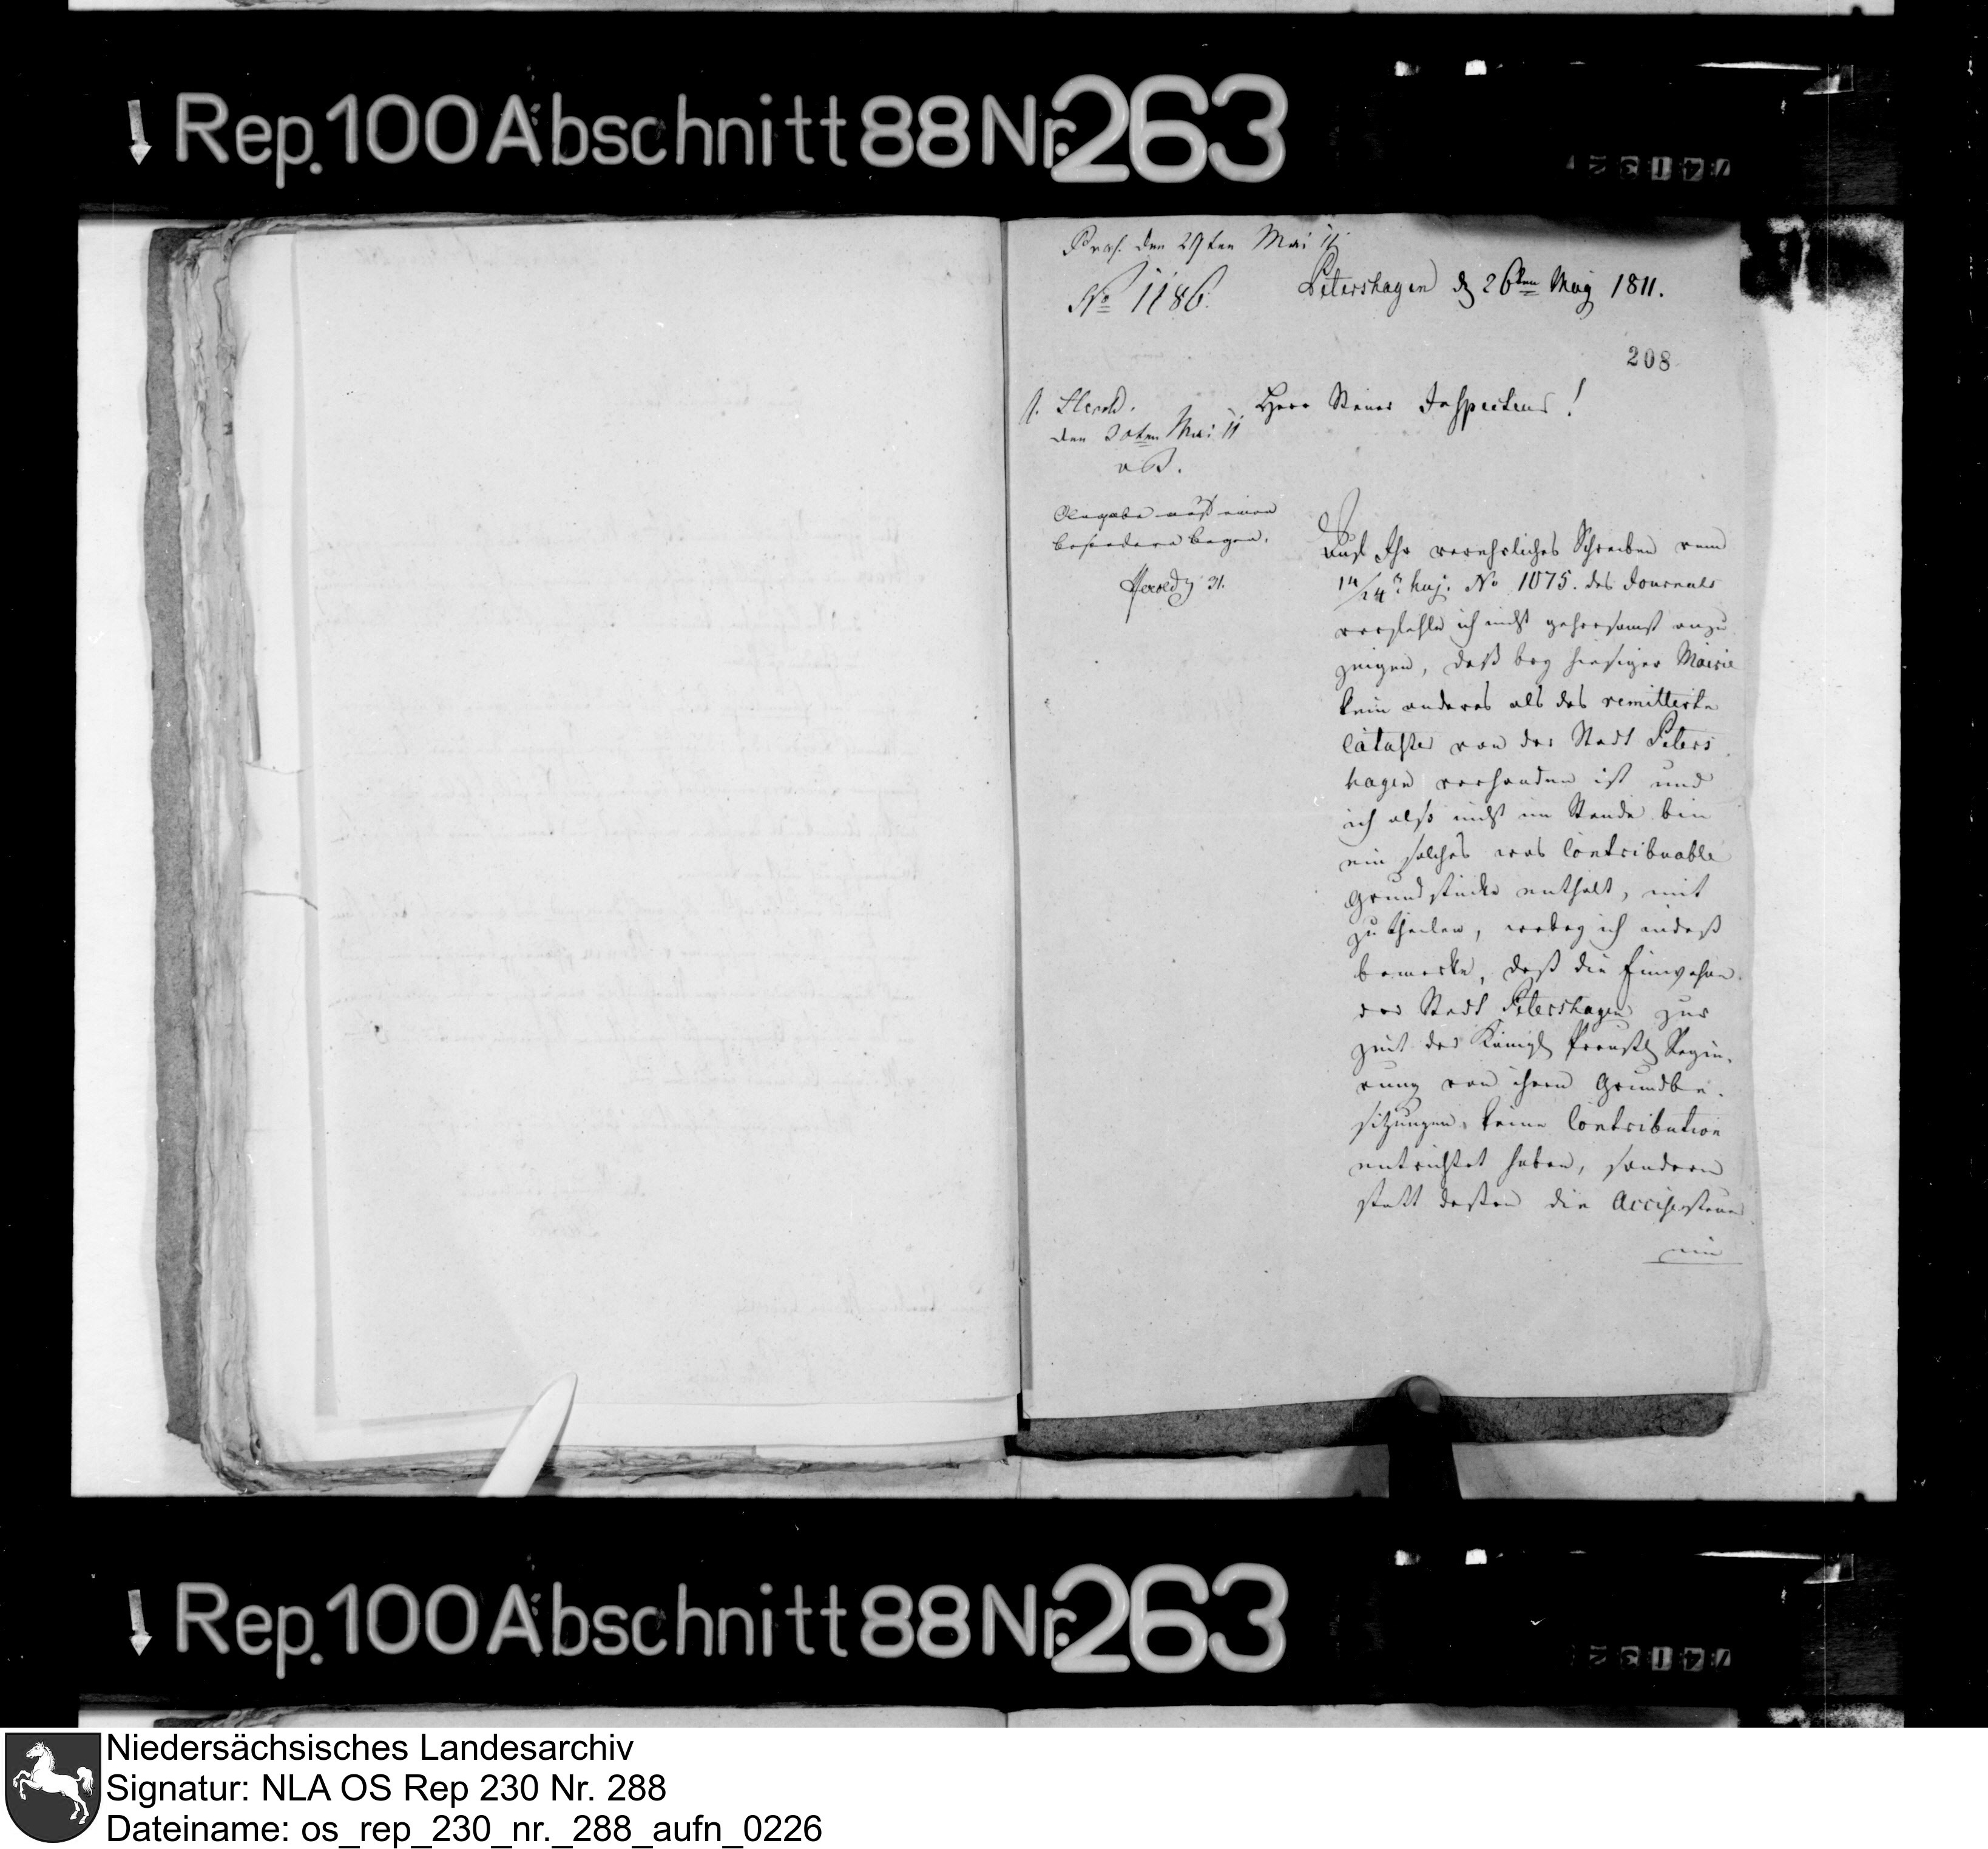 Rep. 100 Abschnitt 88 Nr. 263
Präs. den 29ten Mai 11
No 1186.
Petershagen d 26ten May 1811.
208
Herold.
den 30ten Mai 11
Herr Steuer Inspecteur!
besondern bogen.
Herold 31.
Auf Ihr verehrliches Schreiben vom
14/24 huj. No 1075. des Journals
verfehle ich nicht gehorsamst anzu
zeigen, daß bey hiesiger Mairie
kein anderes als das remittirte
Cataster von der Stadt Peters
hagen vorhanden ist und
ich also nicht im Stande bin
ein solches was Contribuable
Grundstücke enthält, mit
zutheilen, wobey ich indeß
bemerke, daß die Einwohner
der Stadt Petershagen zur
Zeit der Königl Preußl Regie-
rung von ihren Grundbe-
sitzungen, keine Contribution
entrichtet haben, sondern
statt deßen die Accisesteuer
ein
Rep. 100 Abschnitt 88 Nr. 263
Niedersächsisches Landesarchiv
Signatur: NLA OS Rep 230 Nr. 288
Dateiname: os_rep_230_nr._288_aufn_0226